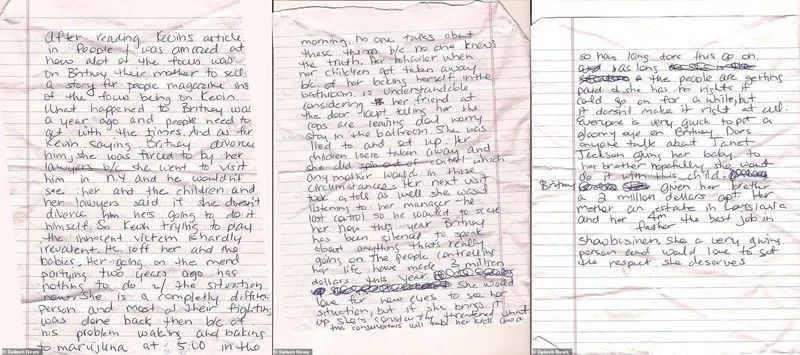 After reading Kevins article
in People I was amazed at
how alot of the focus was
on Britney their mother to sell
a story for people magazine ins
of the focus being on Kevin.
What happened to Britney was
a year ago and people need to
get with the times. And as far
Kevin saying Britney divorce
him, she was forced to by her
lawyers b/c she went to visit
him in N.Y and he wouldn't
see her and the children and
her lawyers said if she doesn't
divorce him he's going to do it
himself. So Kevin trying to play
the innocent victim is hardly
irrevalent. He left her and the
babies. Her going on the mend
partying two years ago has
nothing to do w/ the situation
now. She is a completly differe
person and most of their fighting
was done back then b/c of
his problem waking and baking
to marujuna at 5:00 in the
© Splash News
morning no one talks about
these things b/c no one knows
the truth. Her behavior when
her children got taken away
b/c of her locking herself in the
bathroom is understandable
considering her friend at
the door kept telling her the
cops are leaving dont worry
stay in the bathroom. She was
lied to and set up. Her
children were taken away and
she did control which
any mother would in those
circumstances. Her next visit
took a tdls as well she was
listening to her manager - the
lot control so he would to save
her. Now this year Britney
has been silenced to speak
about anything thats really
going on. The people controlling
her life have made 3 million
dollars this year. She would
love for new eyes to see her
situation, but if she brings it
up she's constantly threatened that
the conservators will take her kids awa
© Splash News
so how long does this go on
as long
the people are getting
paid & she has no rights it
could go on for a while but
it doesn't make it right at all.
Everyone is very quick to put a
gloomy eye on Britney. Does
anyone talk about Janet
Jackson giving her baby to
her brother hopefully she wont
do it with this child.
Britney given her brother
a 2 million dollars apt. Her
mother an estate in Louisiana
and her father 4m the best job in
showbusiness. She a very giving
person and would love to get
the respect she deserves
© Splash News